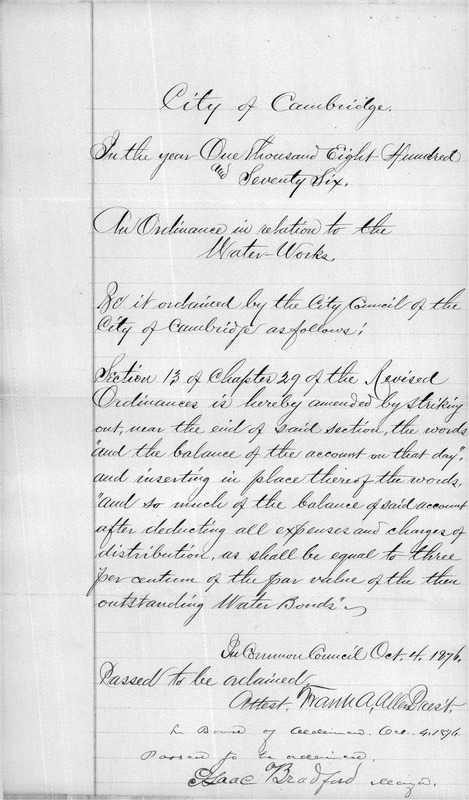 City of Cambridge.
In the year One Thousand Eight Hundred
and Seventy Six.
An Ordinance in relation to the
Water-Works.
Be it ordained by the City Council of the
City of Cambridge as follows:
Section 13 of Chapter 29 of the Revised
Ordinances is hereby amended by striking
out, near the end of said section, the words
"and the balance of the account on that day",
and inserting in place thereof the words,
"and so much of the balance of said account
after deducting all expenses and charges of
distribution, as shall be equal to three
per centum of the par value of the then
outstanding Water Bonds"
In Common Council Oct. 4. 1876.
Passed to be ordained
Attest. Frank A. Allen Pres't.
In Board of Aldermen. Oct. 4. 1876
Passed to be ordained.
Isaac Bradford Mayor.